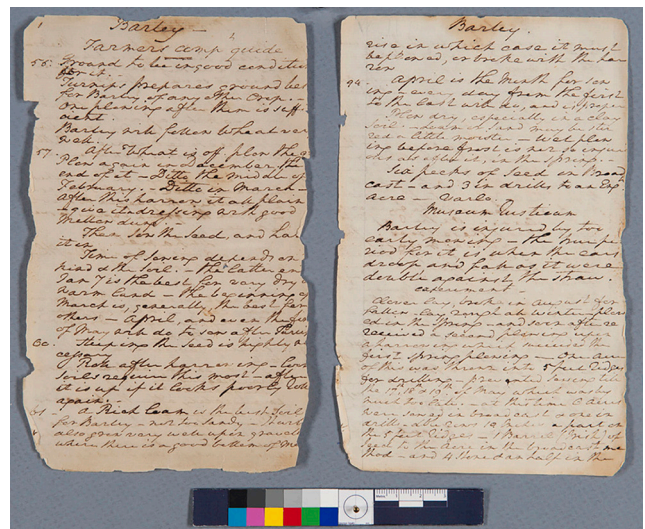 1 Barley —
Farmers comp' guide
55. Ground to be in good conditio
for it.
Turnips prepares ground bes
for Barley of any other Crop. —
One plowing after them is suffi
cient.
Barley will follow Wheat ver
well.
57. After Wheat is off plow the
Plow again in December the
end of it — Ditto the middle of
February, — Ditto in March —
after this harrow it all plain
— give it a dressing with good
Then Sow the Seed, and har
it in
Time of Sowing depends on
kind & the Soil. — the latter en
Jan'y is the best for very dry
warm Land — the beginning of
March is, generally, the best for
others — April and even the
of May will do to sow after Turnip
60. Steeping the Seed is highly ne
cessary
Role after harrowing —
soils require this most — after
it is up if it looks poorly Role
again.
61 — A Rich Loam is the best Soil
for Barley — not too sandy — It will
also grow very well upon gravel
where there is a good bottom of
Barley.
rise in which case it must
be, or broke with the har
row
94. April is the Month for sow
ing — every day from the first
to the last will do, and is proper
Then dry, especially, in a clay
Soil — warm Land may be stir
red a little moister — wet plow
ing before frost is not so injuri
ous as after it, in the Spring. —
Six pecks of Seed in Broad
cast — and 3 in drills to an Eng
acre — Varlo
Museum Rusticum
Barley is injured by too
early mowing — the true pe
riod for it is when the ears
droop and fall as it were
double against the straw.
experiment
Clover lay, broke in August for
fallow lay rough at winter plow
ed in the Spring — and soon after re
ceived a second plowing upon
apart in the
first spring plowing — One acre
of this was thrown into 5 feet Ridges
for drilling —
of May which
— at the same time 2 acres
were sowed in broad cast & one in
drills — the rows 10 Inches apart on
the 5 feet Ridges — 1 Barrel & of
Seed to the acre in the broad cast me
thod — and 4 Stone and a half in the